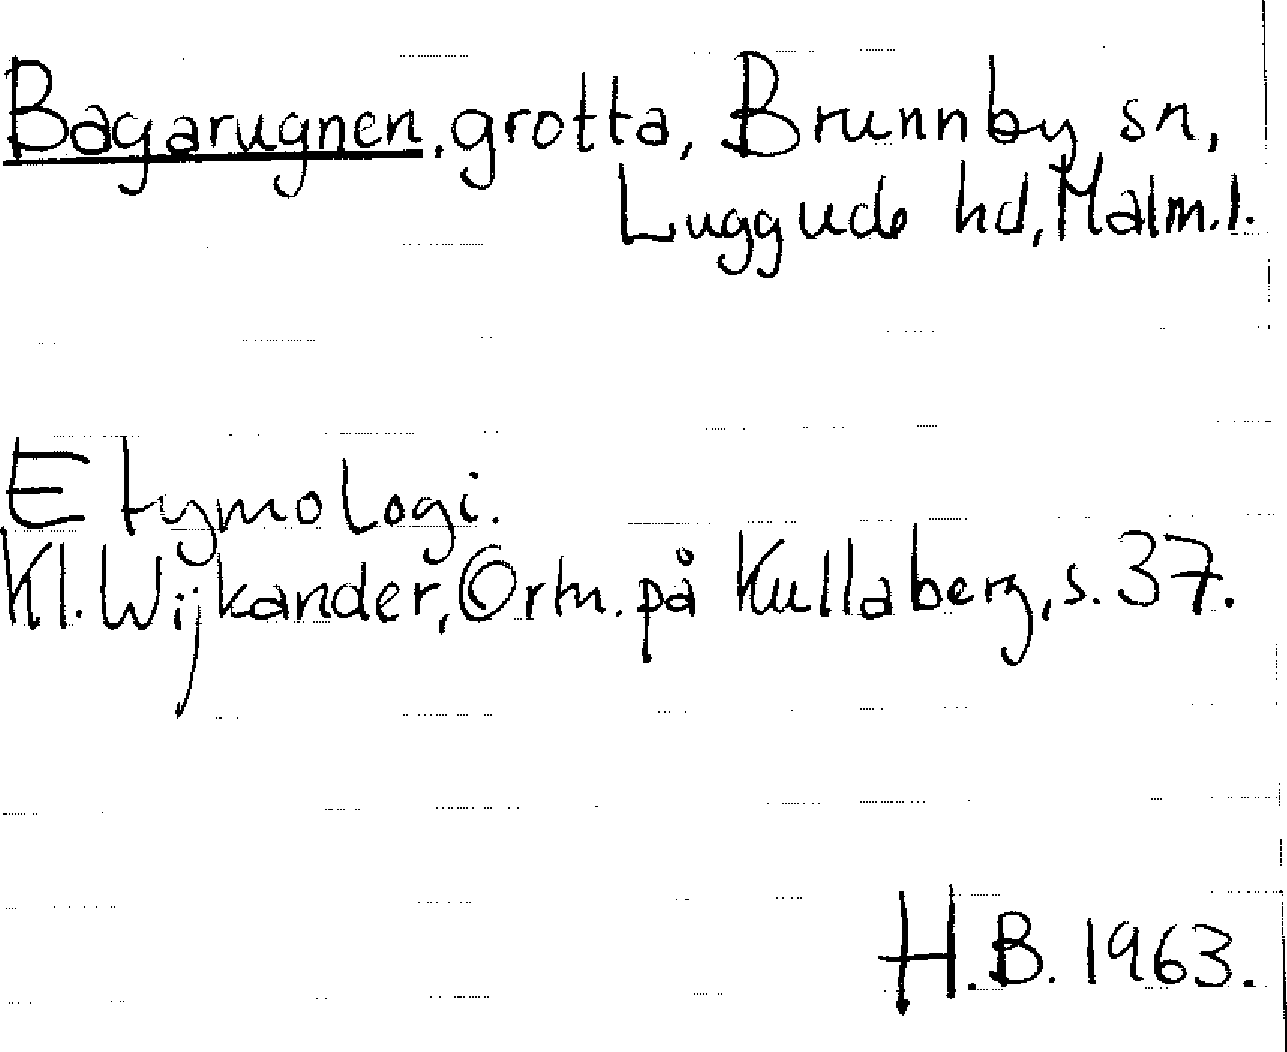 Bagarugnen, grotta, Brunnby sn,
Luggude hd, Malm.l.
Etymologi.
Kl. Wijkander, Ortn. på Kullaberg, s. 37.
H.B. 1963.